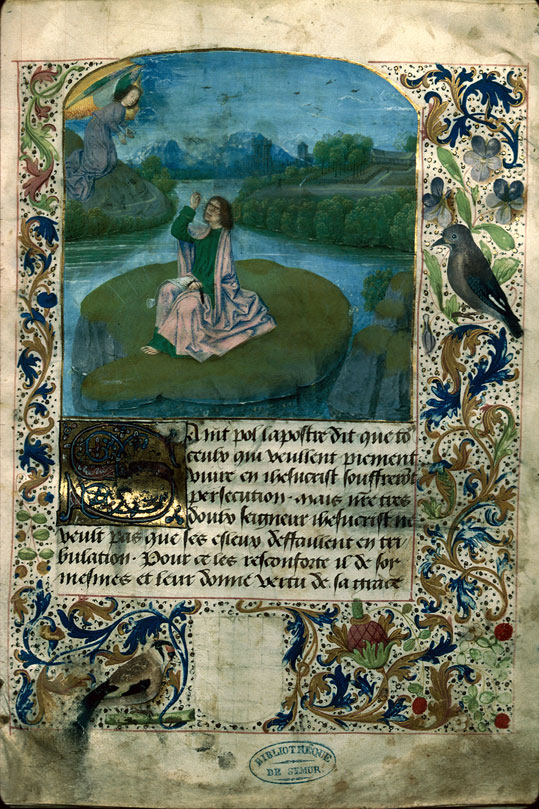 Saint pol lapostre dit que to
ceulx qui veullent piement
viure en ihesucrist souffreront
persecution. mais nre tres
doulx seigneur ihesucrist ne
veult pas que ses esleuz deffaillent en tri
bulation. Pour ce les resconforte il de soy
mesmes et leur donne vertu de sa grace
BIBLIOTHÈQUE
DE SEMUR.